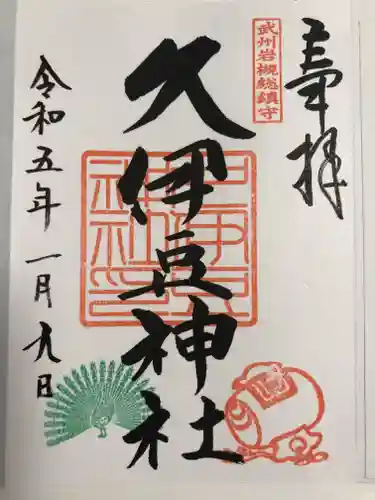 奉拝
武州岩槻総鎮守
久伊豆神社
令和五年一月九日